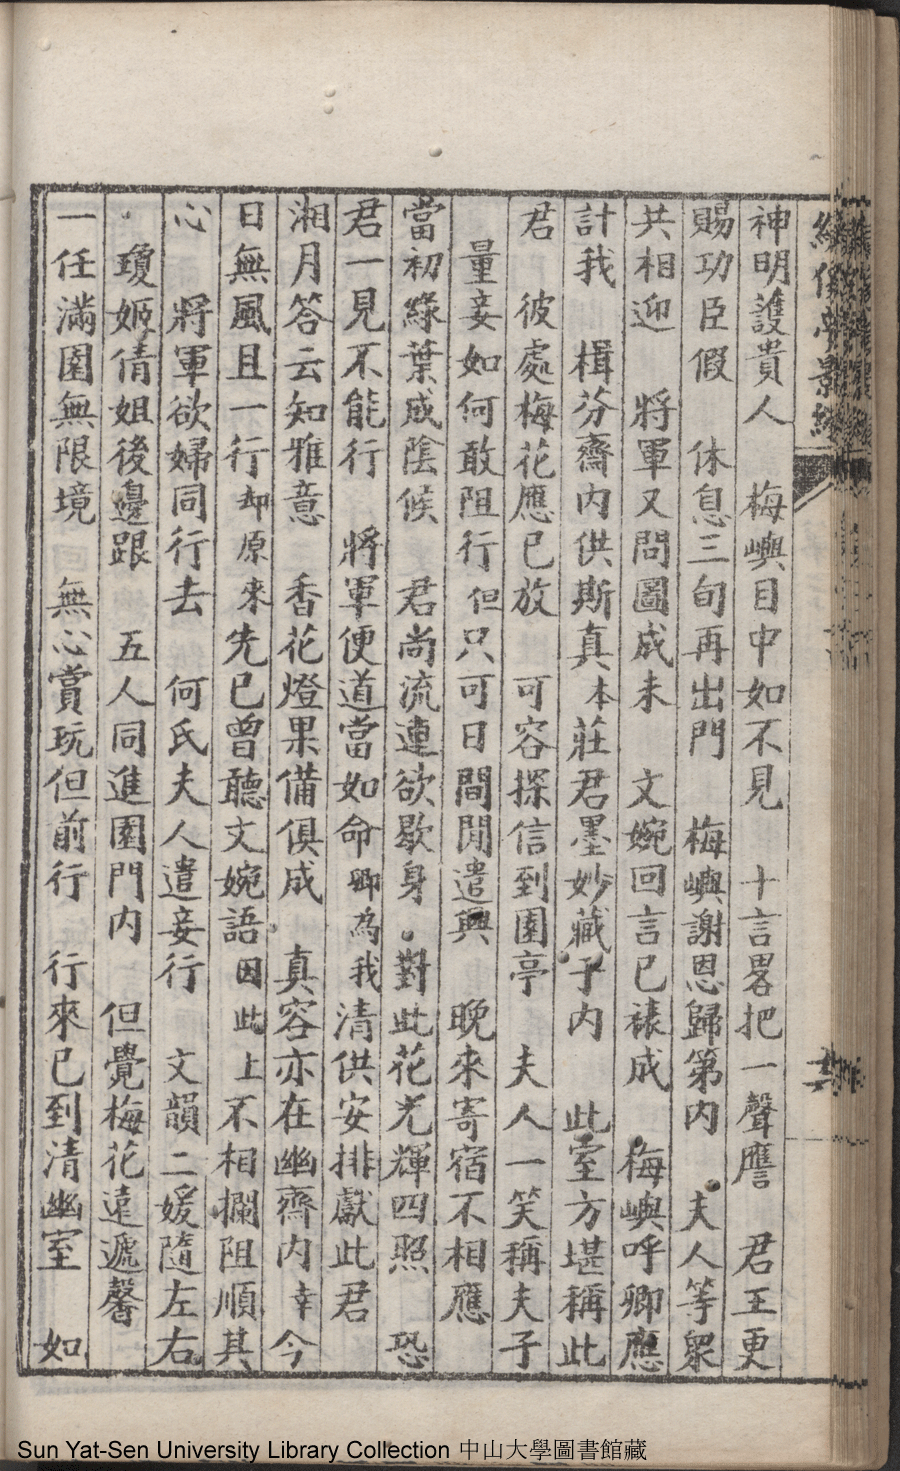 神明護貴人　梅嶼目中如不見　十言畧把一聲譍　君王更
賜功臣假　休息三旬再出門　梅嶼謝恩歸第内　夫人等衆
共相迎　將軍又問圖成未　文婉回言已裱成　梅嶼呼卿應
計我　楫芬齋内供斯真　本莊君墨妙藏于内　此室方堪稱此
君　彼處梅花應已放　可容探信到園亭　夫人一笑稱夫子
量妾如何敢阻行　但只可日間閒遣興　晚來寄宿不相應
當初綠葉成陰候　君尚流連欲歇身　對此花光輝四照　恐
君一見不能行　將軍便道當如命　卿為我清供安排獻此君
湘月答云知雅意　香花燈果備俱成　真容亦在幽齋内　幸今
日無風且一行　却原來先已曾聽文婉語　因此上不相攔阻順其
心　將軍欲婦同行去　何氏夫人遣妾行　文韻二媛隨左右
瓊姬倩姐後邊跟　五人同進園門内　但覺梅花遠遞馨
一任滿園無限境　無心賞玩但前行　行來已到清幽室　如
Sun Yat-Sen University Library Collection 中山大學圖書館藏